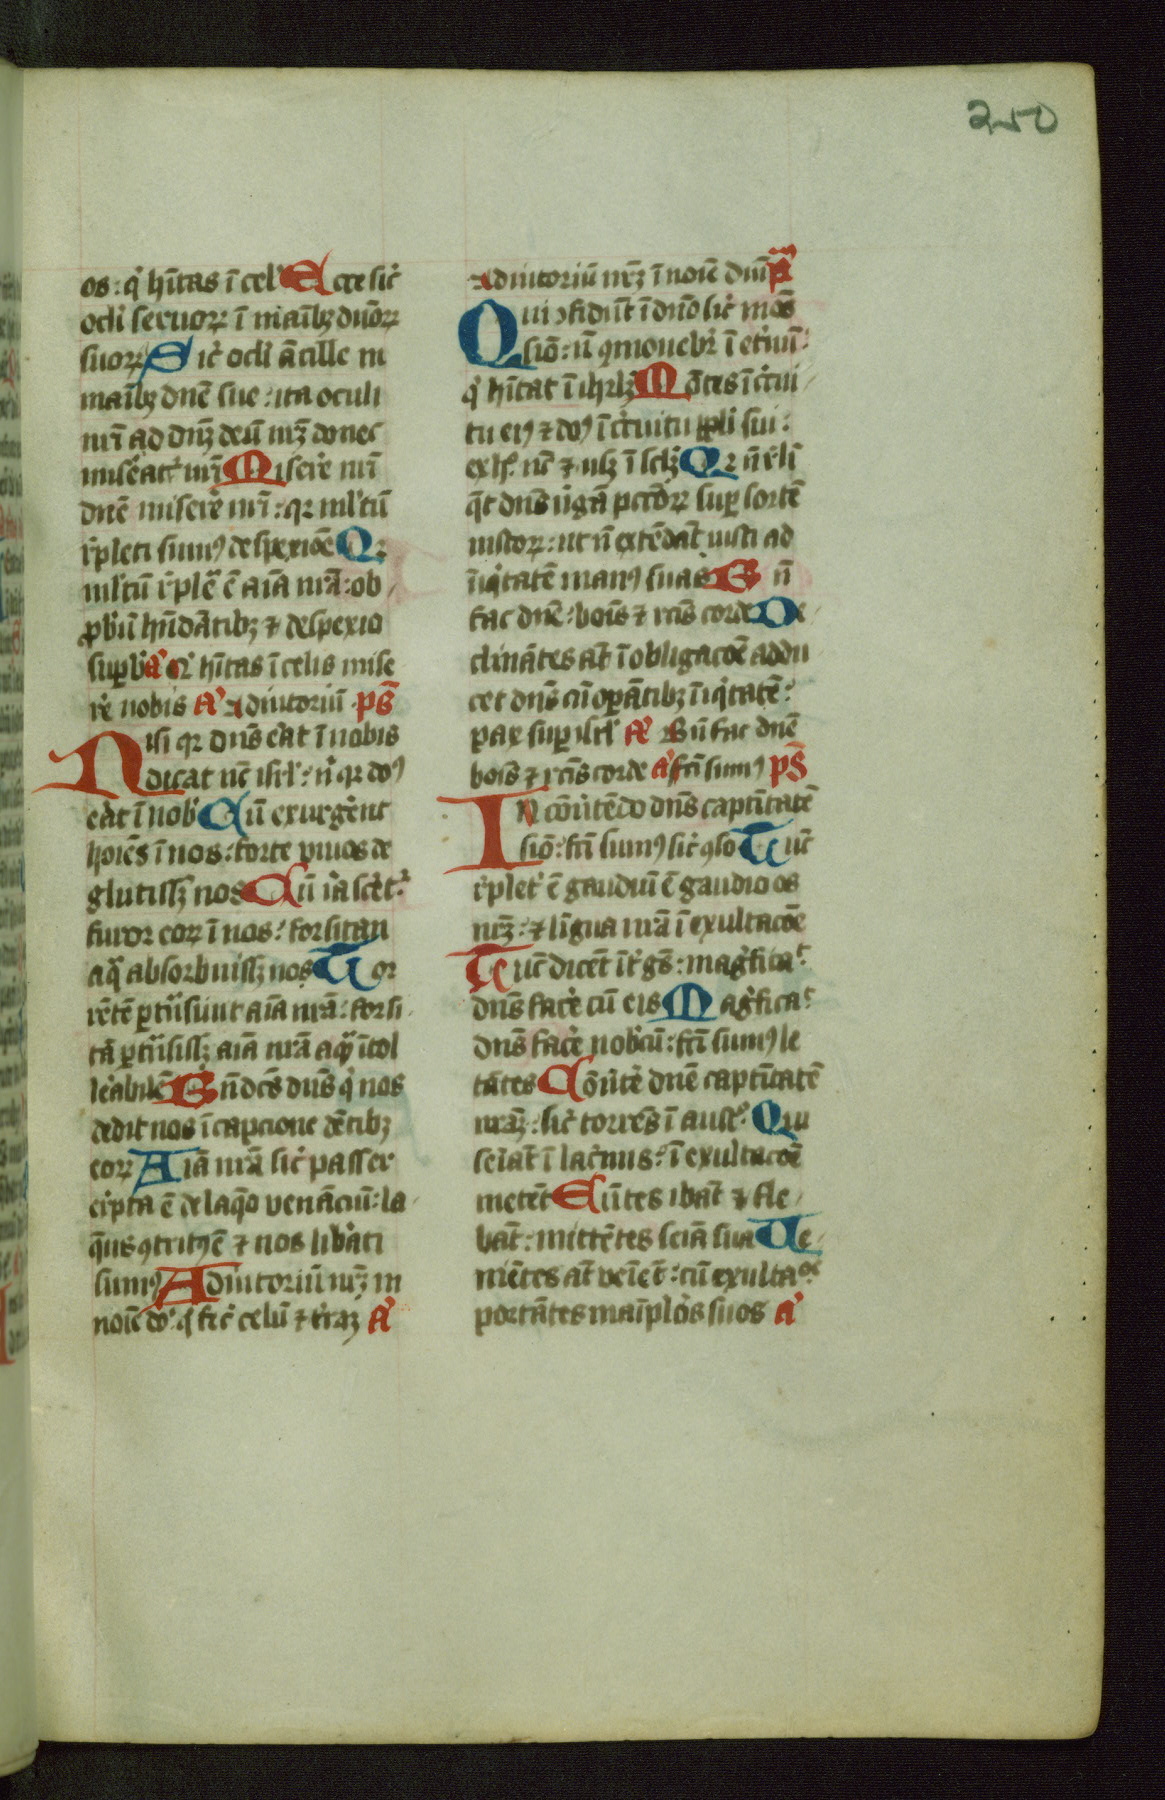 250
os: q̇ hītas ī cel' Ecce sic̄
ocli seruoꝝ ī maībꝫ dn̄oꝝ
suoꝝ Sic̄ ocli ācille in
maībꝫ dn̄e sue: ita oculi
nr̄i ad dn̄ꝫ deū nr̄ꝫ donec
miseat᷑ nr̄i Misere nr̄i
dn̄e misere nr̄i: qꝛ ml'tū
r̄pleti sumꝰ despexiōe Qꝛ
ml'tū r̄plēa ē aīa nr̄a: ob
ꝓbriū hn̄dātibꝫ ⁊ despexio
suꝑb' A' Q' hītas ī celis mise
re nobis A' Adiutoriū ps̄
Nisi qꝛ dn̄s erāt ī nobis
dicat nc̄ isrl': n̄ qꝛ dn̄ꝰ
erāt ī nob' Cū exurgēnt
hoīes ī nos: forte viuos de
glutissꝫ nos Cū irāscēt᷑
furor eoꝝ ī nos: forsitan
aq̄ absorbuissꝫ nos Tor
rētē ꝑtn̄siuit aīa nr̄a: forsi
tā ꝑtn̄sissꝫ aīa nr̄a aquā ītol
lerabilē Bn̄dc̄s dn̄s q̇ nos
dedit nos ī capcione dētibꝫ
eoꝝ Aīa nr̄a sic̄ passer
eīpta ē de laq̄o venāciū: la
q̄us ꝯtritꝰ ē ⁊ nos lib'ati
sumꝰ Adiutoriū nr̄ꝫ in
noīe do' q̇ fec̄ celū ⁊ t'rā A'
Adiutoriū nr̄ꝫ ī noīe dn̄i A
Qui ꝯfidūt ī dn̄o sic̄ mōs
siō: n̄ ꝯmouebr̄ ī et'nū:
q̇ hītat ī ihrlꝫ Mōtes ī c'cui
tu eiꝰ ⁊ dn̄ꝰ ī c'cuitu ppli sui:
ex hͨ nc̄ ⁊ usqꝫ ī sclꝫ Qꝛ n̄ r̄li
q̄t dn̄s v̇gā pccōꝝ suꝑ sortē
iustoꝝ: ut n̄ extēdāt iusti ad
īiq̇tatē manꝰ suas Bn̄
fac dn̄e: boīs ⁊ rc̄is corde De
clinātes at̄ ī obligacōe addu
cet dn̄s cū oꝑātibꝫ īiq̇tatē:
pax suꝑ isrl' A' Bn̄ fac dn̄e
bois ⁊ rc̄is corde A' fc̄i sumꝰ ps̄
In cōu'tēdo dn̄s captiītatē
siō: fc̄i sumꝰ sic̄ ꝯso Tūc
r̄plet᷑ ē gaudiū ē gaudio os
nr̄ꝫ: ⁊ līgua nr̄a ī exultacōe
Tūc dicēt īt' gēs: mag̓fica
dn̄s facēe cū eis Mag̓fica
dn̄s facēe nobcū: fc̄i sumꝰ le
tātes Cōu'te dn̄e captiītatē
nr̄aꝫ: sic̄ torrēs ī aust' Qui
seiāt ī lac'mis: ī exultacōe
metēt Eūtes ibāt ⁊ fle
bāt: mittētes seīa sua Ve
niētes at̄ veīet: cū exulta
portātes maīplos suos A'